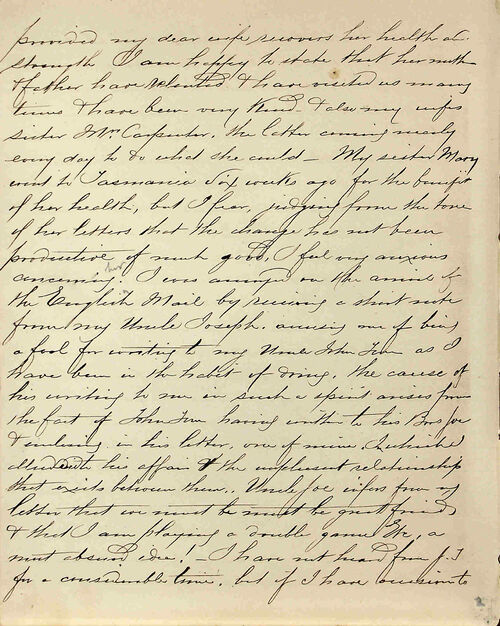 provided my dear wife recovers her health &
strength I am happy to state that her mother
& father have relented & have visited us many
times & have been very kind & also my wifes
sister Mrs Carpenter, the latter coming nearly
every day to do what she could — My sister Mary
went to Tasmania six weeks ago for the benefit
of her health, but I fear, judging from the tone
of her letters that the change has not been
productive of much good, I feel very anxious
concerning her I was annoyed on the arrival of
the English Mail by receiving a short note
from my Uncle Joseph. accusing me of being
a fool for writing to my Uncle John as I
have been in the habit of doing. the cause of
his writing to me in such a spirit arises from
the fact of John having written to his Bro Joe
& enclosing in his letter, one of mine, in which I
alluded to his affair & the unpleasant relationship
that exists between them., Uncle Joe infers from my
letter that we must be must be great friends
& that I am playing a double game &c, a
most absurd idea! — I have not heard from J. T
for a considerable time, but if I have occasion to